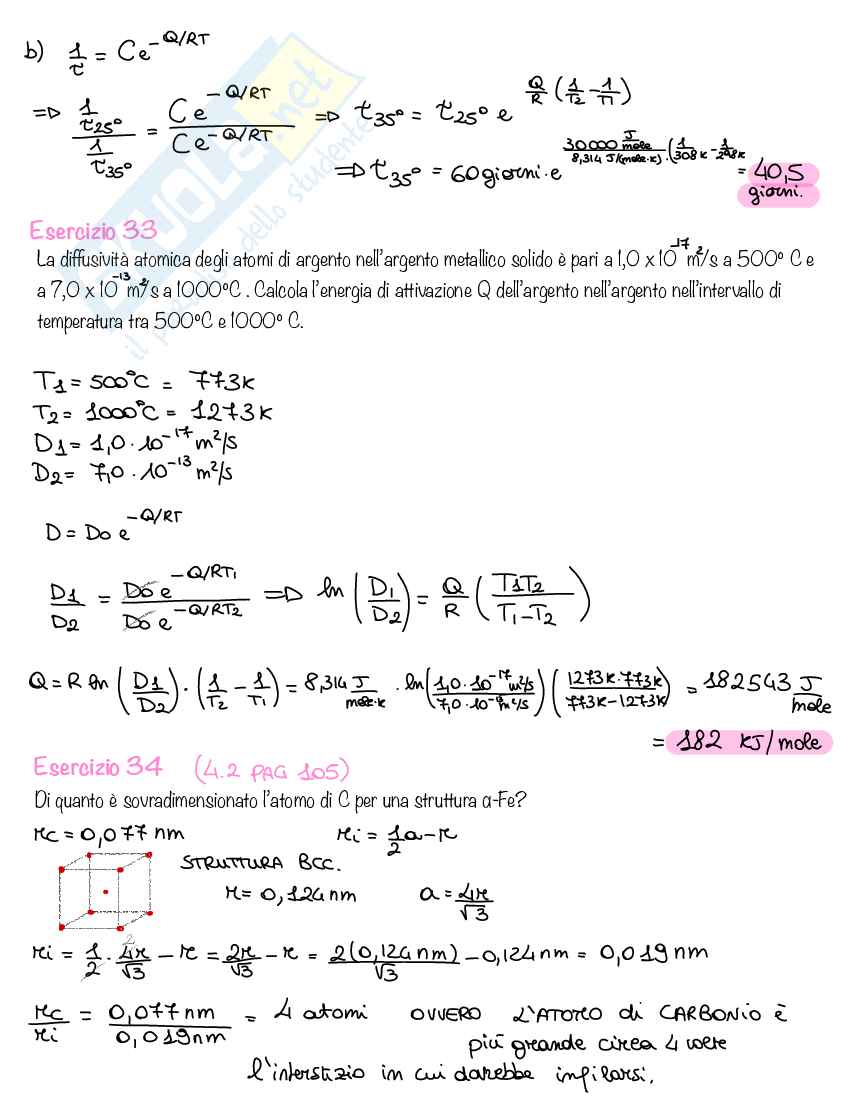 b) 1/τ = Ce^-Q/RT
=> (1/τ25°)/(1/τ35°) = Ce^-Q/RT / Ce^-Q/RT => τ35° = τ25° e^Q/R (1/T2 - 1/T1)
=> τ35° = 60 giorni · e^(30000 J/mole / 8,314 J/(mole·K) · (1/308K - 1/298K = 40,5 giorni.
Esercizio 33
La diffusività atomica degli atomi di argento nell'argento metallico solido è pari a 1,0 x 10^-17 m²/s a 500° C e
a 7,0 x 10^-13 m²/s a 1000°C . Calcola l'energia di attivazione Q dell'argento nell'argento nell'intervallo di
temperatura tra 500°C e 1000° C.
T1 = 500°C = 773K
T2 = 1000°C = 1273K
D1 = 1,0 · 10^-17 m²/s
D2 = 7,0 · 10^-13 m²/s
D = Do e^-Q/RT
D1/D2 = Do e^-Q/RT1 / Do e^-Q/RT2 => ln (D1/D2) = Q/R (T1T2 / T1-T2)
Q = R ln (D1/D2) · (1/T2 - 1/T1) = 8,314 J/mole·K · ln (1,0·10^-17 m²/s / 7,0·10^-13 m²/s) (1273K·773K / 773K-1273K) = 182543 J/mole
= 182 KJ/mole
Esercizio 34 (4.2 PAG 105)
Di quanto è sovradimensionato l'atomo di C per una struttura α-Fe?
rc = 0,077 nm ri = 1/2 a - r
STRUTTURA BCC.
r = 0,124 nm a = 4r/√3
ri = 1/2 · 4r/√3 - r = 2r/√3 - r = 2(0,124 nm)/√3 - 0,124 nm = 0,019 nm
rc/ri = 0,077 nm / 0,019 nm = 4 atomi OVVERO L'ATOMO di CARBONIO è
più grande circa 4 volte
l'interstizio in cui darebbe infilarsi.
SKUOLA.net
il paradiso dello studente